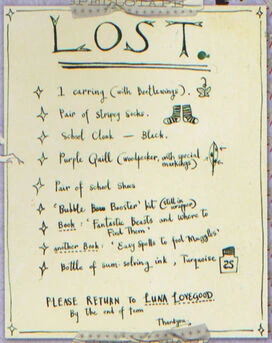 LOST.
1 earring (with Beetlewings).
Pair of Stripey Socks.
School Cloak — Black.
Purple Quill (woodpecker, with special
markings)
Pair of school shoes
'Bubble Booster' hat (still in
wrapper)
Book: 'Fantastic Beasts and where to
Find Them'
another Book: 'Easy Spells to fool Muggles'
Bottle of sum-solving ink, Turquoise
25
PLEASE RETURN TO LUNA LOVEGOOD
By the end of term
Thankyou.